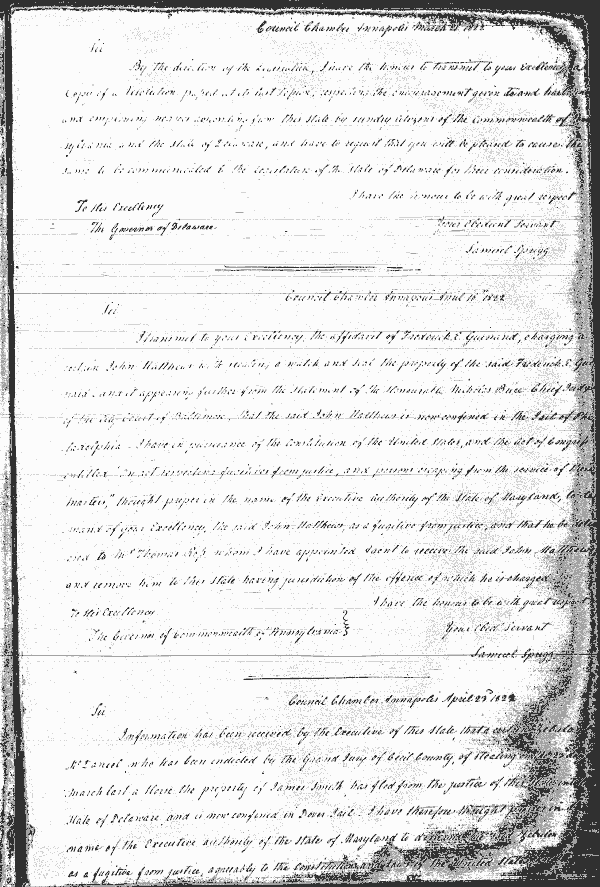 Council Chamber Annapolis March 21 1822
Sir
By the direction of the Legislature, I have the honour to transmit to your Excellency a
Copy of a Resolution passed at its last Session, respecting the encouragement given to and
and employing negroes absconding from this State by sundry citizens of the Commonwealth of
sylvania and the State of Delaware, and have to request that you will be pleased to cause the
same to be communicated to the Legislature of the State of Delaware for their consideration.
I have the honour to be with great respect
To His Excellency
Your Obedient Servant
The Governor of Delaware.
Samuel Sprigg
Council Chamber Annapolis April 16th 1822
Sir
I transmit to your Excellency, the affidavit of Frederick E. charging a
certain John Matthews with stealing a watch and seal the property of the said Frederick E.
and it appearing further from the statement of the Honourable Nicholas Brice Chief Judge
of the City Court of Baltimore, that the said John Matthews is now confined in the Jail of
adelphia. I have in pursuance of the Constitution of the United States, and the Act of Congress
entitled "An act respecting fugitives from justice, and persons escaping from the service of their
masters," thought proper in the name of the Executive authority of the State of Maryland, to de
mand of your Excellency, the said John Matthews, as a fugitive from justice, and that he be
ered to Mr. Thomas whom I have appointed Agent to receive the said John Matthews
and remove him to this State having jurisdiction of the offence of which he is charged
I have the honour to be with great respect
To His Excellency
Your Obed. Servant
The Governor of Commonwealth of Pennsylvania
Samuel Sprigg
Council Chamber Annapolis April 23d 1822
Sir
Information has been received by the Executive of this State, that a certain
who has been indicted by the Grand Jury of Cecil County of stealing
March last a the property of James Smith has fled from the justice of this
State of Delaware and is now confined in Dover Jail. I have therefore thought proper in
name of the Executive authority of the State of Maryland to
as a fugitive from justice, agreeably to the Constitution and of the United States